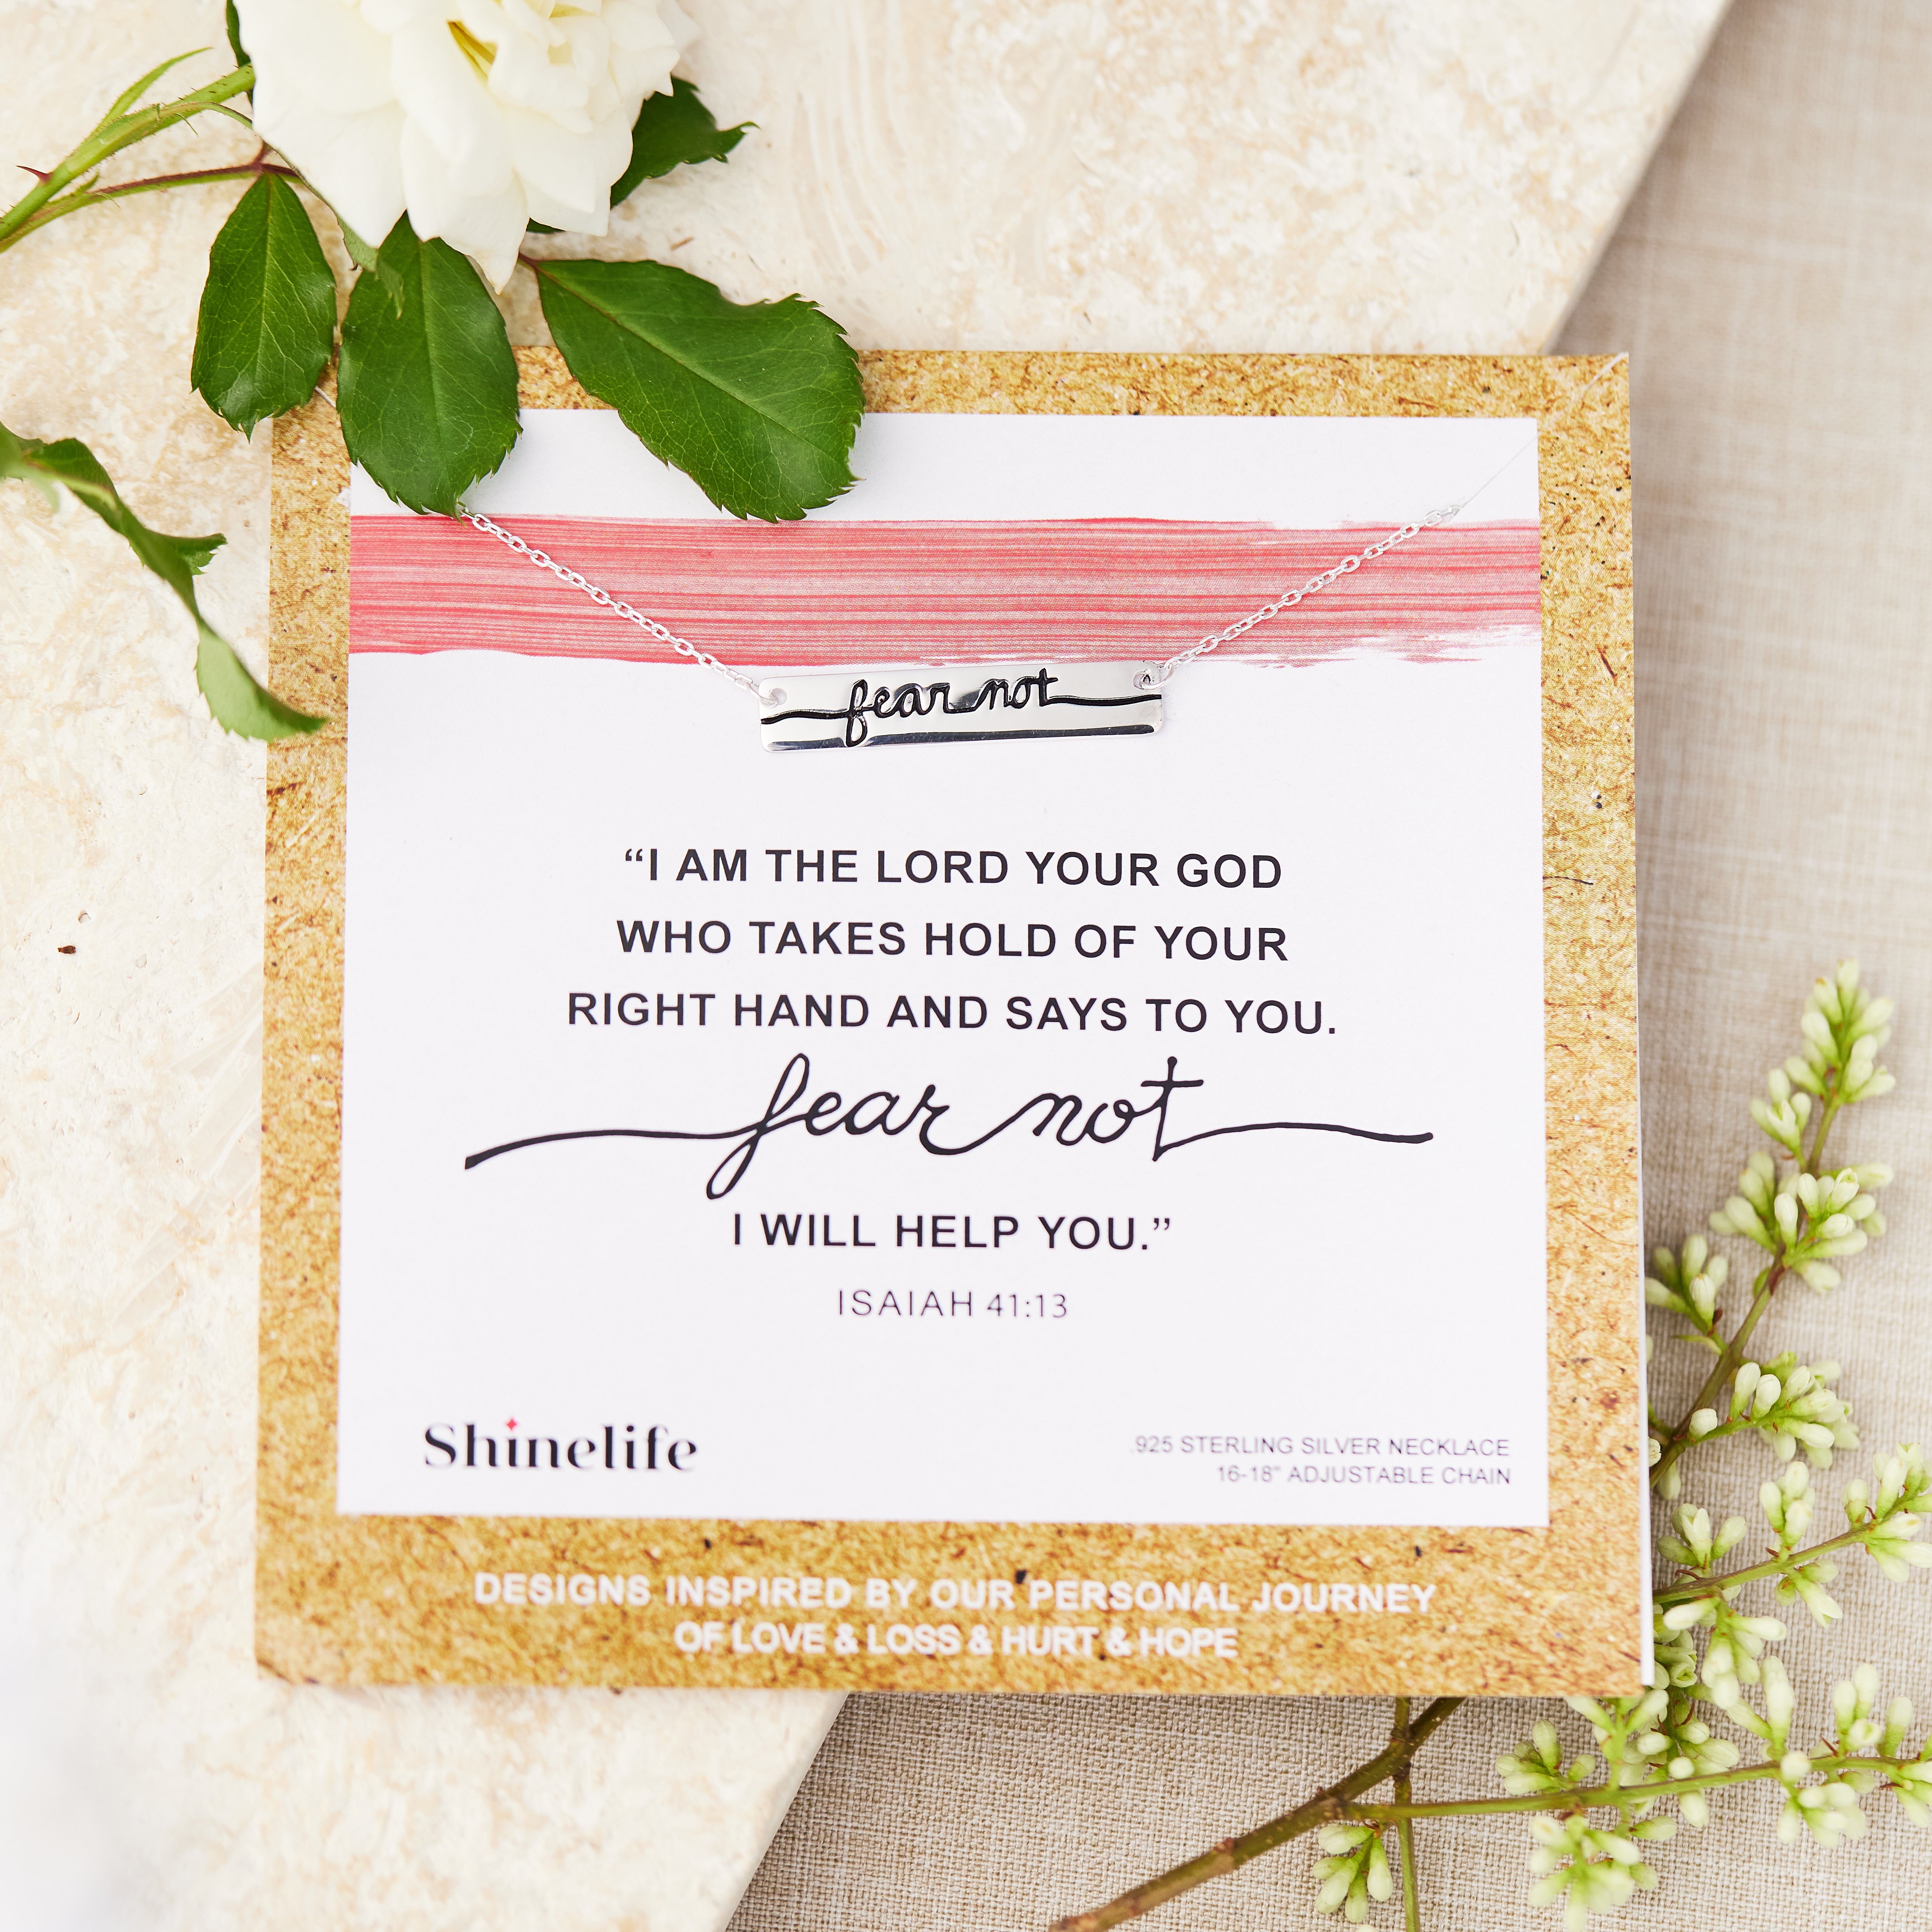 fear not
“I AM THE LORD YOUR GOD
WHO TAKES HOLD OF YOUR
RIGHT HAND AND SAYS TO YOU.
fear not
I WILL HELP YOU.”
ISAIAH 41:13
Shinelife
.925 STERLING SILVER NECKLACE
16-18" ADJUSTABLE CHAIN
DESIGNS INSPIRED BY OUR PERSONAL JOURNEY
OF LOVE & LOSS & HURT & HOPE